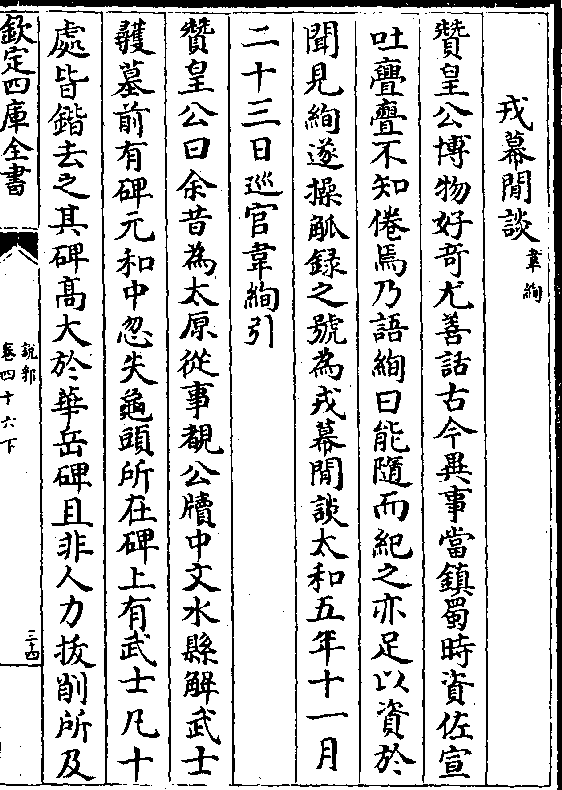 戎幕閒談 韋絢
贊皇公博物好奇尤善話古今異事當鎮蜀時資佐宣
吐亹亹不知倦焉乃語絢曰能隨而紀之亦足以資於
聞見絢遂操觚録之號為戎幕閒談太和五年十一月
二十三日巡官韋絢引
贊皇公曰余昔為太原從事覩公牘中文水縣解武士
彠墓前有碑元和中忽失龜頭所在碑上有武士凡十
處皆鐫去之其碑髙大於華岳碑且非人力拔削所及
欽定四庫全書
說郛
卷四十六下
三十四